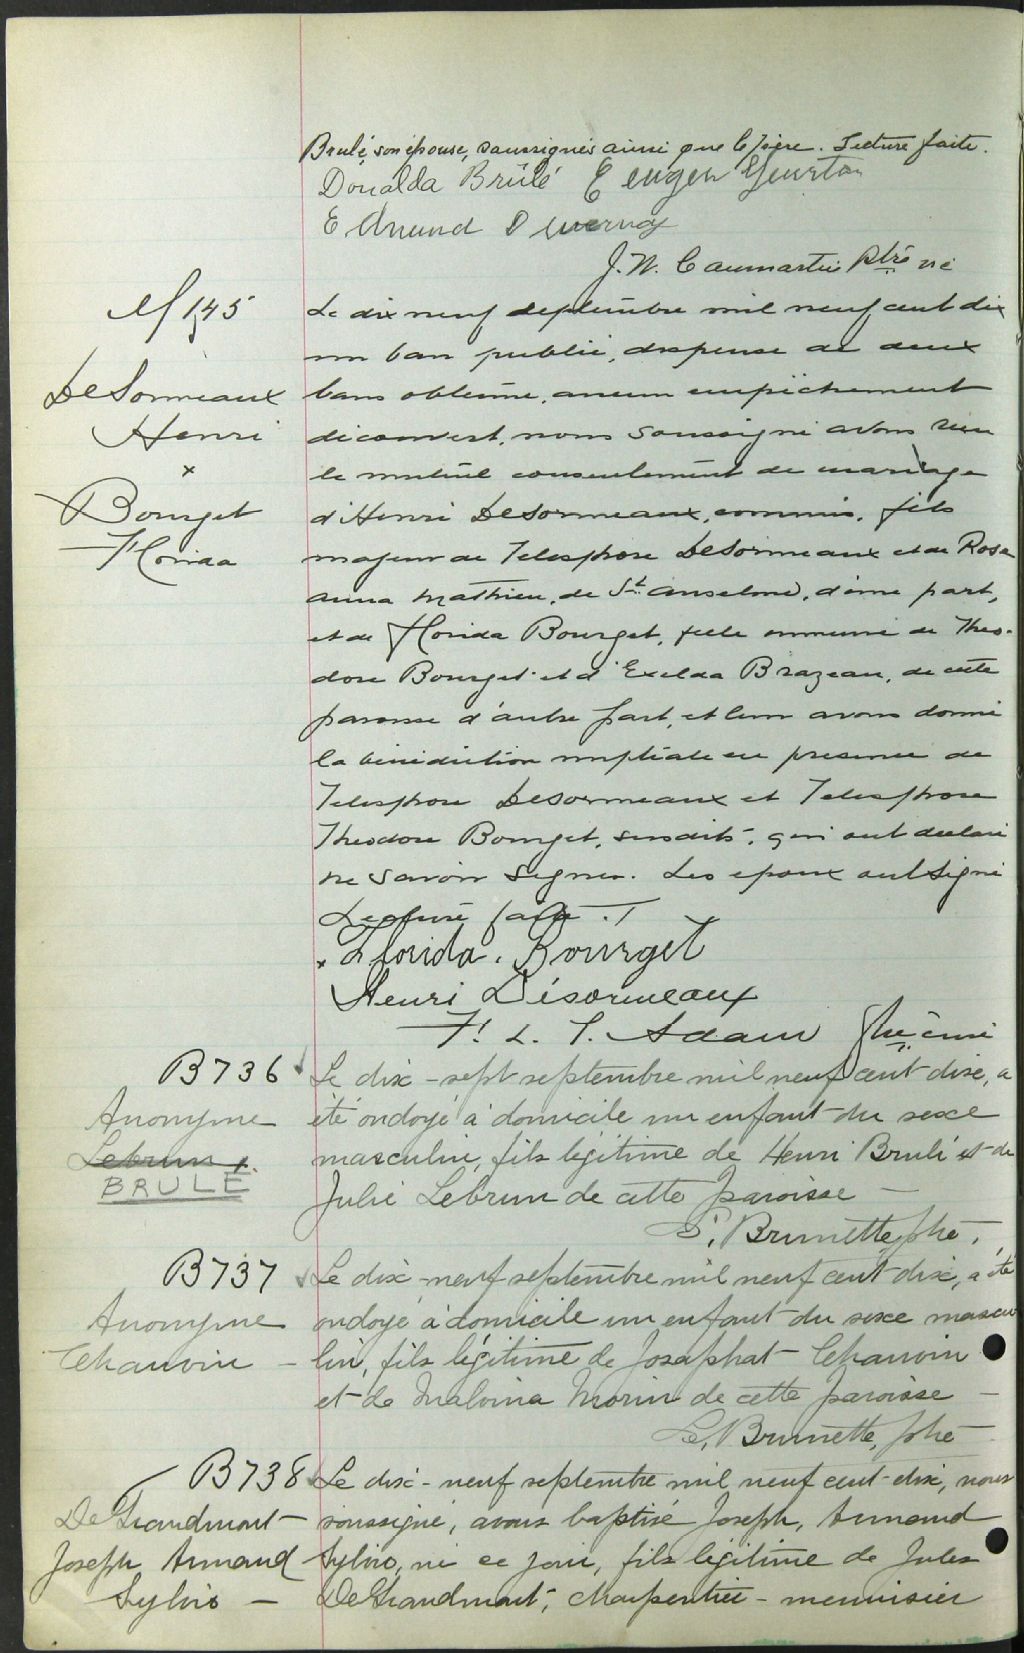 Brulé, son épouse, soussignés ainsi que le père. Lecture faite.
Donalda Brûlé Eugen
Edmund Duvernay
J. N. Caumartin Ptre vic
M 145
DeSormeaux
Henri
x
Bourget
Florida
Le dix neuf septembre mil neuf cent dix
un ban publié, dispense de deux
bans obtenue, aucun empêchement
découvert, nous soussigné avons reçu
le mutuel consentement de mariage
d'Henri DeSormeaux, commis, fils
majeur de Telesphore DeSormeaux et de Rose
anna Mathieu, de St. Anselme, d'une part,
et de Florida Bourget, fille mineure de Theo-
dore Bourget et d'Exelda Brazeau, de cette
paroisse d'autre part, et leur avons donné
la bénédiction nuptiale en présence de
Telesphore Desormeaux et Telesphore
Theodore Bourget, susdits, qui ont déclaré
ne savoir signer. Les epoux ont signé
Lecture faite.
x Florida. Bourget
Henri Désormeaux
F. L. T. Adam Ptre curé
B736
Anonyme
Lebrun
BRULÉ
Le dix-sept septembre mil neuf cent dix, a
été ondoyé à domicile un enfant du sexe
masculin, fils légitime de Henri Brulé et de
Julie Lebrun de cette paroisse —
E. Brunette, ptre.
B737
Anonyme
Chauvin —
Le dix neuf septembre mil neuf cent dix, a été
ondoyé à domicile un enfant du sexe mascu
lin, fils légitime de Josaphat Chauvin
et de Malvina Morin de cette paroisse —
E. Brunette, ptre
B738
DeGrandmont —
Joseph Armand
Sylvio —
Le dix-neuf septembre mil neuf cent dix, nous
soussigné, avons baptisé Joseph, Armand
Sylvio, né ce jour, fils légitime de Jules
DeGrandmont, charpentier-menuisier